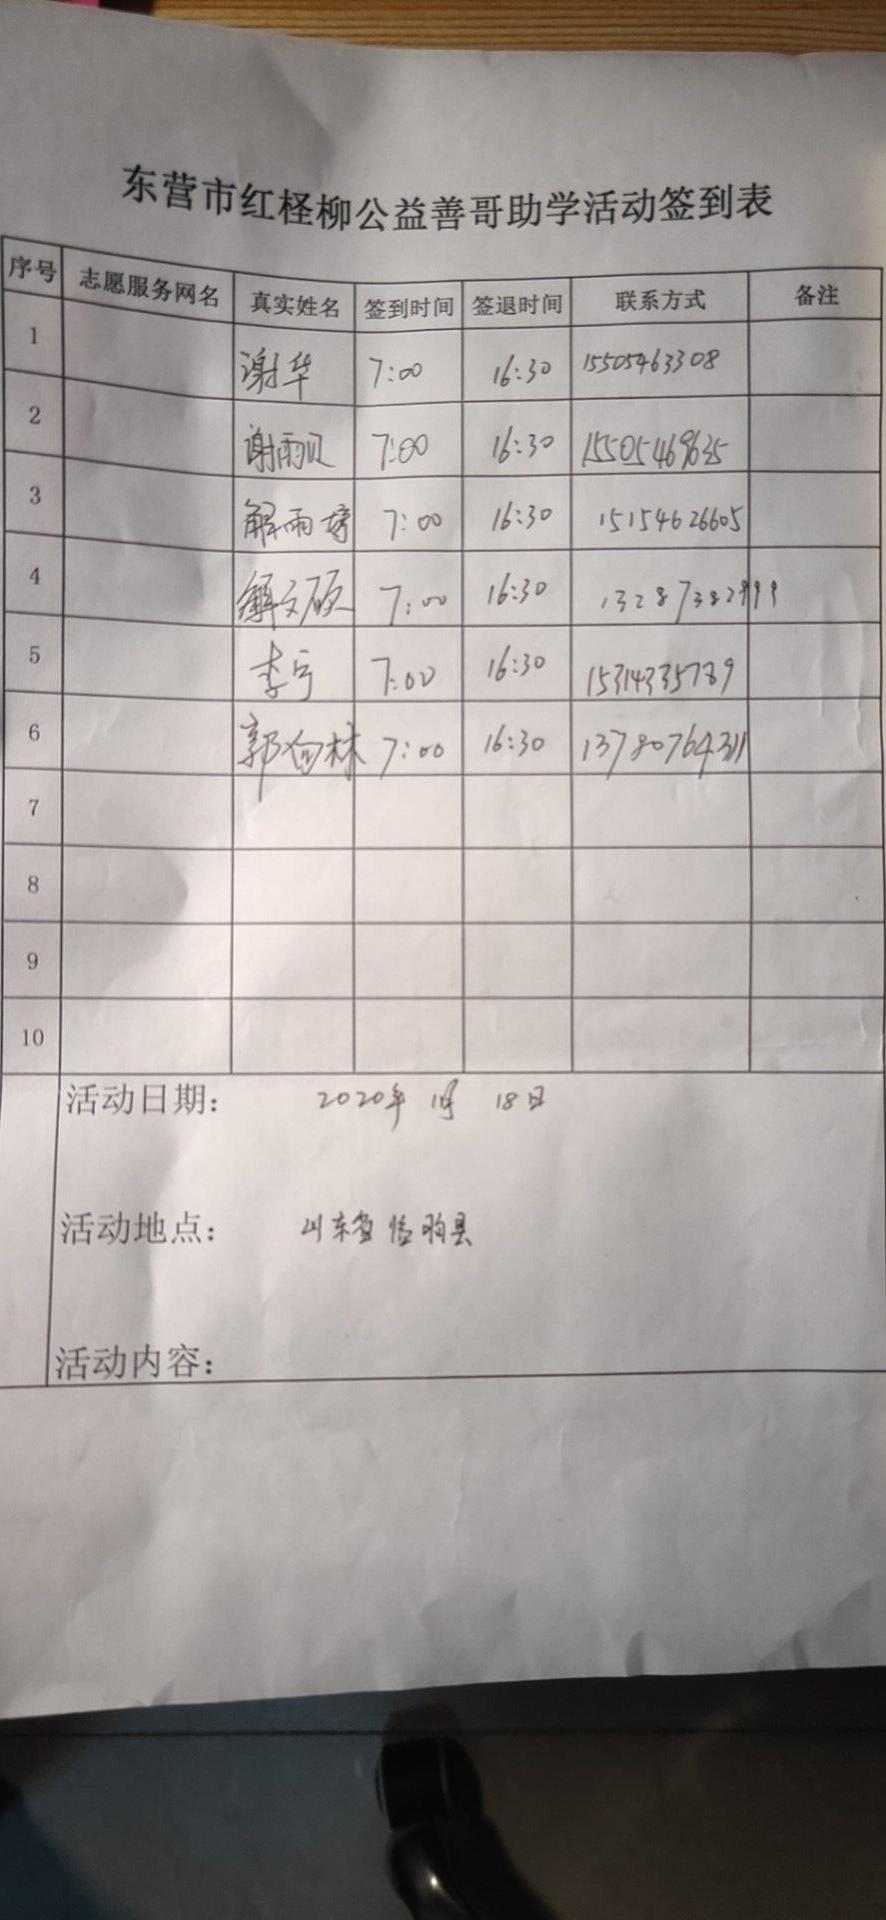 东营市红柽柳公益善哥助学活动签到表
序号 志愿服务网名 真实姓名 签到时间 签退时间 联系方式 备注
1 谢华 7:00 16:30 15505463308
2 谢雨贝 7:00 16:30 15505469635
3 解雨婷 7:00 16:30 15154626605
4 解文硕 7:00 16:30 13287382999
5 李 7:00 16:30 15314335789
6 郭 林 7:00 16:30 13780764311
7
8
9
10
活动日期： 2020年 10月 18日
活动地点： 山东省临朐县
活动内容：